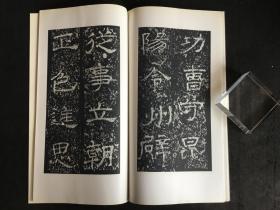 功曹守昆
陽令州辟
從事立朝
正色進思